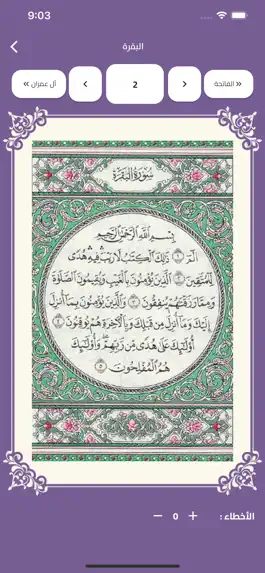 9:03
البقرة
« الفاتحة
2
آل عمران »
سُورَةُ البَقَرَةِ
بِسْمِ اللَّهِ الرَّحْمَٰنِ الرَّحِيمِ
الٓمٓ ١ ذَٰلِكَ الْكِتَٰبُ لَا رَيْبَ فِيهِ هُدًى
لِّلْمُتَّقِينَ ٢ الَّذِينَ يُؤْمِنُونَ بِالْغَيْبِ وَيُقِيمُونَ الصَّلَوٰةَ
وَمِمَّا رَزَقْنَٰهُمْ يُنفِقُونَ ٣ وَالَّذِينَ يُؤْمِنُونَ بِمَا أُنزِلَ
إِلَيْكَ وَمَا أُنزِلَ مِن قَبْلِكَ وَبِالْآخِرَةِ هُمْ يُوقِنُونَ ٤
أُولَٰئِكَ عَلَىٰ هُدًى مِّن رَّبِّهِمْ وَأُولَٰئِكَ
هُمُ الْمُفْلِحُونَ ٥
الأخطاء : + 0 −